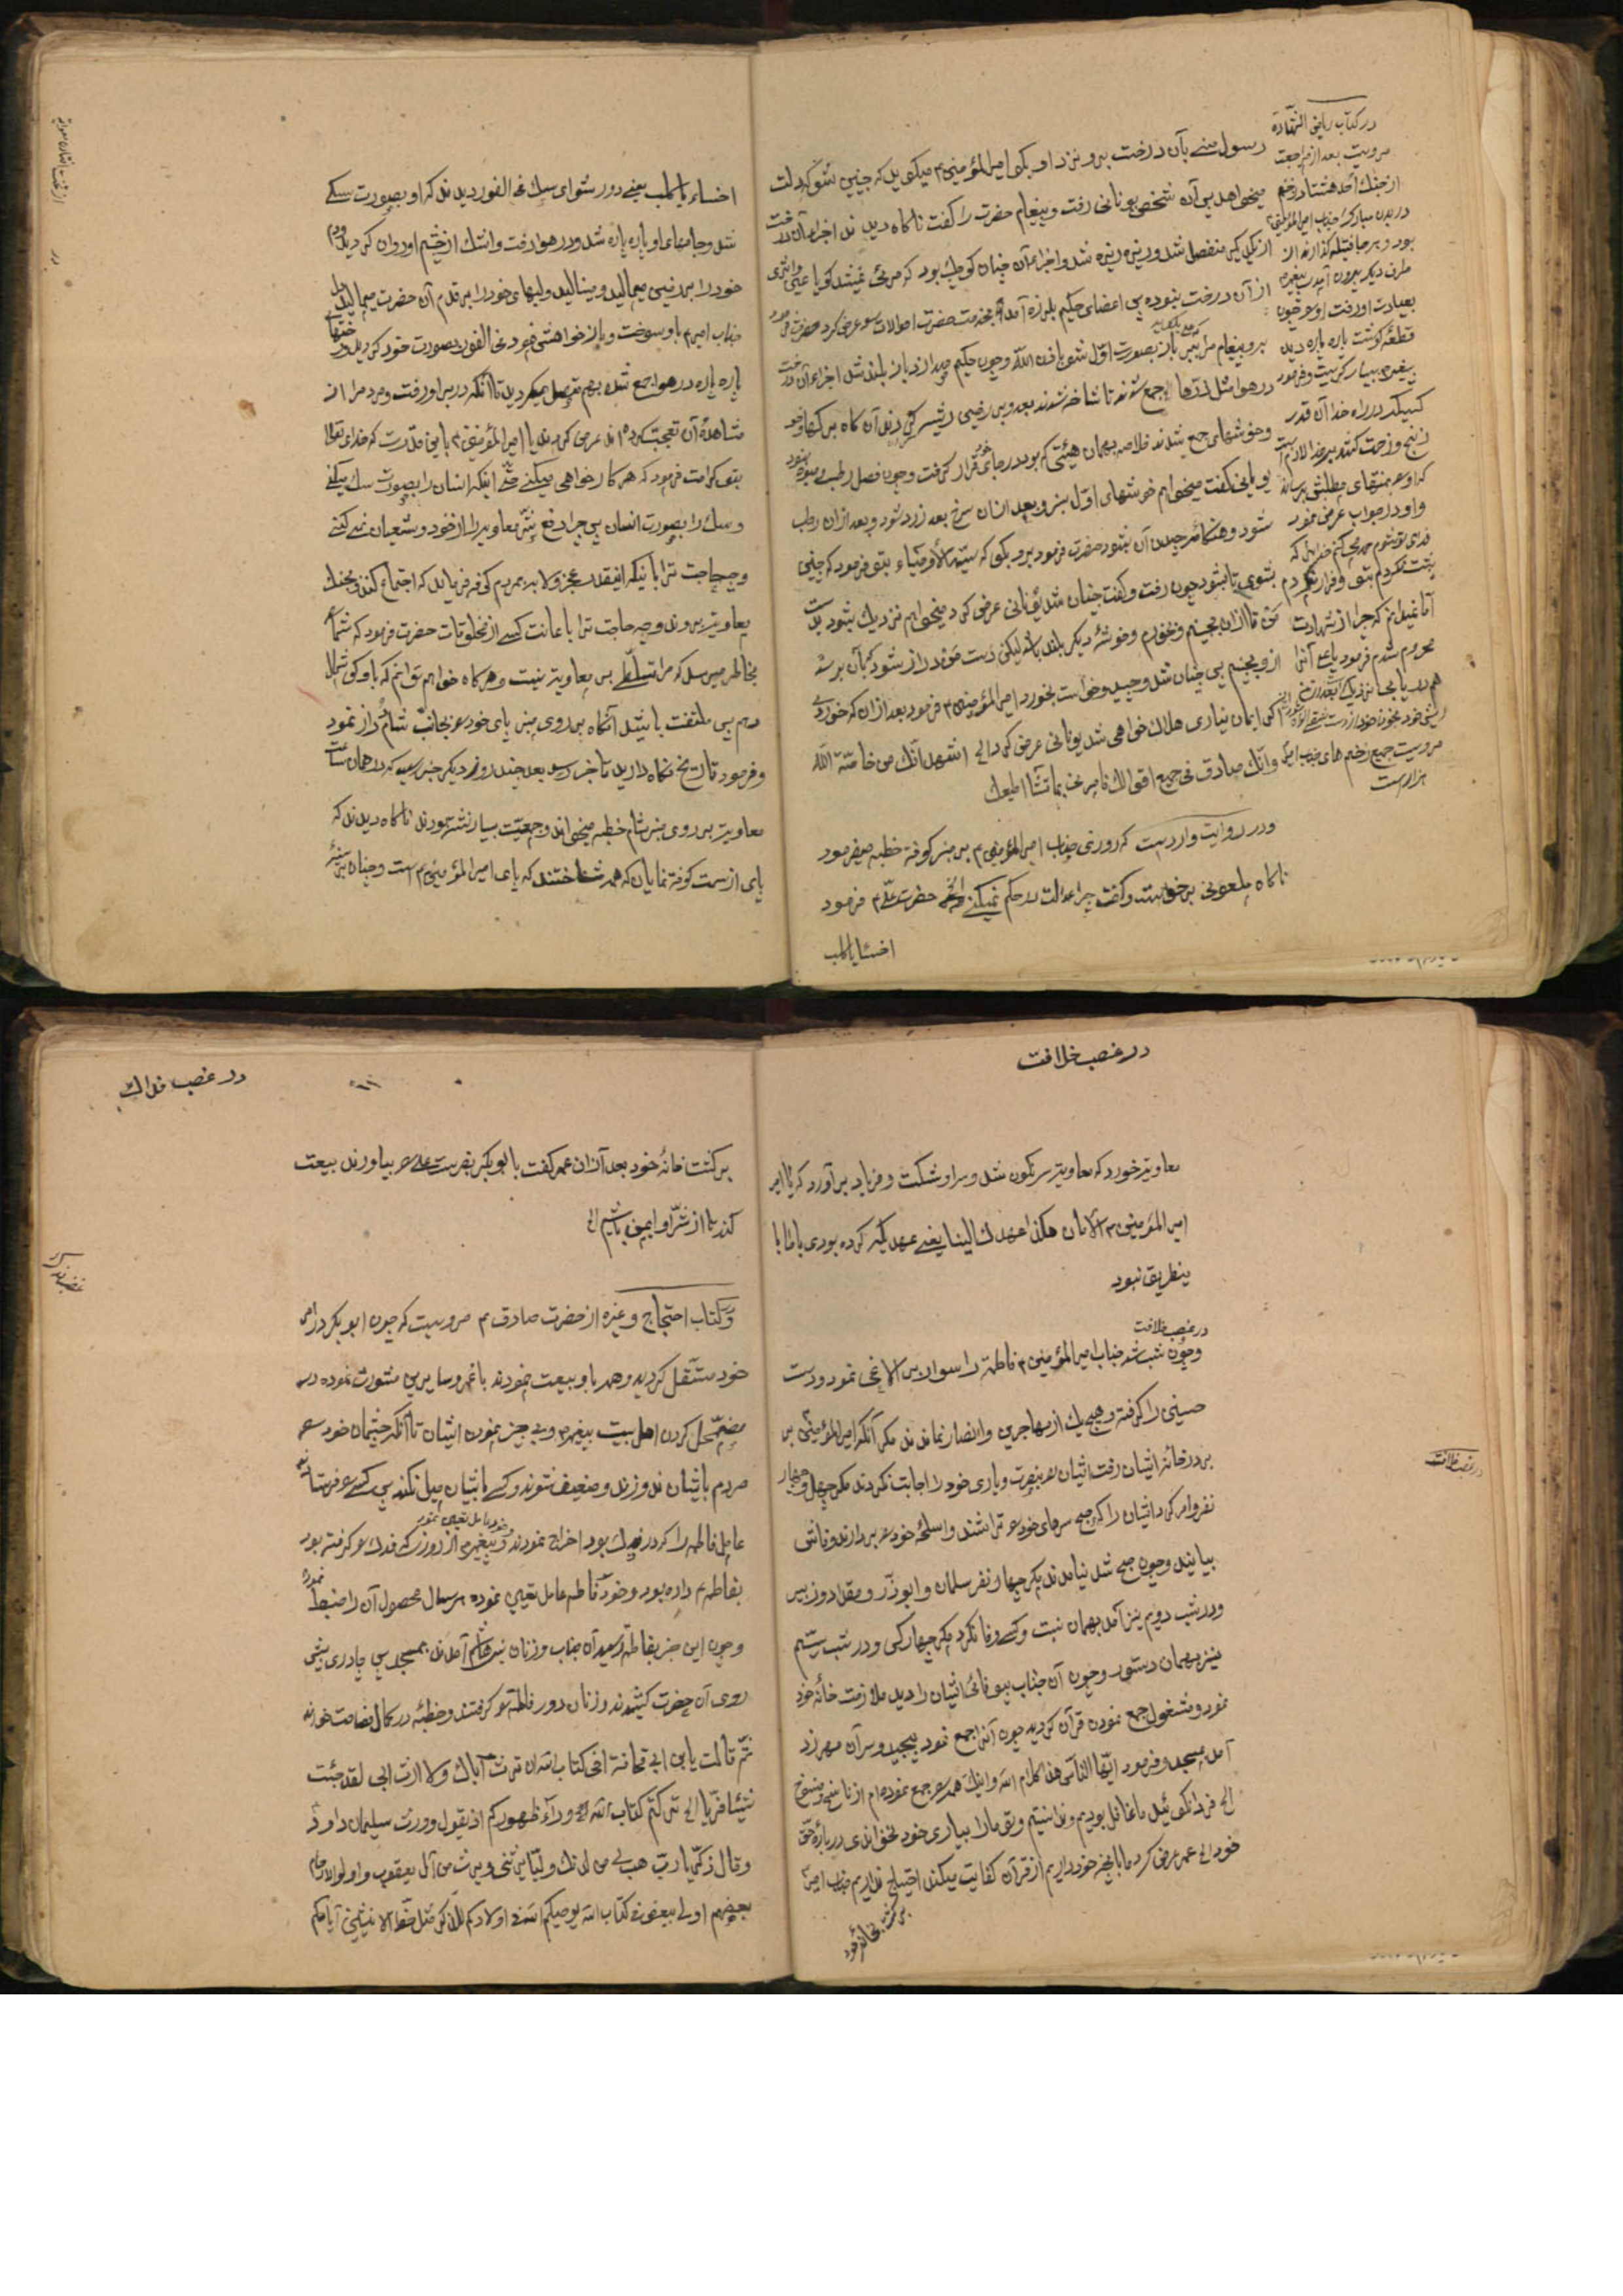 در کتاب ریاض الشهادة
مرویست بعد از مراجعت
از جنك احد هشتاد زخم
در بدن مبارك جناب امیرالمؤمنین
بود و بهر جا فتیله گذارند از
طرف دیکر بیرون آید پیغمبر
بعیادت او رفت او را چون
قطعهٔ کوشت پاره پاره دید
پیغمبر بسیار کریست و فرمود
کسیکه در راه خدا آن قدر
رنج و زحمت کشد بر خدا لازمست
که او را بمنتهای مطلبش برساند
و او در جواب عرض نمود
پشت نکردم بتو و فرار نکردم
اما نمیدانم که چرا از شهادت
محروم شدم فرمود یا علی آنرا
مرویست جمیع زخم های جناب امیر
هزار است
رسول منی بآن درخت برو نزد او بکو امیرالمؤمنین م میکوید که چنین شو که دلت
میخواهد پس آن شخص یونانی رفت و پیغام حضرت را کفت ناکاه دیدند اجزاء آن درخت
از یکدیکر منفصل شد و ریزه ریزه شد و اجزاء آن چنان کوچك بود که مرئی نمیشد کویا عین و اثری
از آن درخت نبوده پس اعضای حکیم بلرزه آمد بخدمت حضرت احوالات را عرض کرد حضرت فرمود
برو پیغام مرا ببر باز بصورت اوّل شو باذن الله و چون حکیم صدا زد باز بلند شد اجزاء آن درخت
در هوا مثل ذرّها جمع شوند تا شاخه شوند بعد
و خوشهای جمع شدند خلاصه بهمان هیئتی که بود در جای خود قرار کرفت و چون فصل رطب و میوه نبود
یونانی کفت میخواهم خوشهای اوّل سبز و بعد از آن سرخ بعد زرد شود و بعد از آن رطب
شود و هنکام چیدن آن بشود حضرت فرمود برو بکو که سیّد الأوصیاء بتو فرمود که چنین
بشوی تا بشود چون رفت و کفت چنان شد یونانی عرض کرد میخواهم نزدیك شود بدست
من تا از آن بچینم و بخورم و خوشهٔ دیکر بلند باشد لیکن دست من دراز شود که بآن برسد
از و بچینم پس چنان شد و چید و خواست بخورد امیرالمؤمنین م فرمود بعد از آن که خوردی
اکر ایمان نیاری هلاك خواهی شد یونانی عرض کرد الی اشهد انّك من خاصّة الله
وانّك صادق فی جمیع اقوالك فامر نی بما تشاء اطیعك
و در روایت وارد است که روزی جناب امیرالمؤمنین م بر منبر کوفه خطبه میفرمود
ناکاه ملعونی برخواست و کفت چرا عدالت در حکم نمیکنی حضرت علی م فرمود
اخسئا یا کلب
اخساء یا کلب یعنی دور شو ای سك فی الفور دیدند که او بصورت سکی
شد و جامهای او پاره پاره شد و در هوا رفت و اشك از چشم او روان کردید و دم
خود را بر زمین میمالید و مینالید و لبهای خود را بر قدم آن حضرت میمالید دل
جناب امیر م باو سوخت و باز خواهش فرمود فی الفور بصورت خود کردید و رختهای
پاره پاره در هوا جمع شده بهم متصل میکردید تا آنکه در بر او رفت و مردم را از
مشاهدهٔ آن تعجّب کرده اند عرض کردند یا امیرالمؤمنین م باین قدرت که خدای تعالی
بتو کرامت فرمود که هر کار خواهی میکنی حتّی اینکه انسان را بصورت سك میکنی
و سك را بصورت انسان پس چرا دفع شرّ معاویه را از خود و شیعیان نمی کنی
و چه حاجت ترا باینکه اینقدر عجز و لابه بمردم کوفه فرمایید که اجتماع کنند بجنك
معاویه بروند و چه حاجت ترا باعانت کسی از مخلوقات حضرت فرمود که شما را
بخاطر میرسد که مرا تسلّطی بر معاویه نیست و هر کاه خواهم توانم که باو کوشمال
دهم پس ملتفت باشید آنکاه بر روی منبر پای خود را بجانب شام دراز نمود
و فرمود تاریخ نکاه دارید تا خبر رسد بعد چند روز دیکر خبر رسید که در همان ساعت
معاویه بر روی منبر شام خطبه میخواند و جمعیّت بسیار نشسته بودند ناکاه دیدند که
پای از سمت کوفه نمایان که همه شناختند که پای امیرالمؤمنین م است و چنان بر سینهٔ
در غصب خلافت
معاویه خورد که معاویه سرنکون شد و سر او شکست و فریاد بر آورد که یا امیر
امیرالمؤمنین م الامان هکذا عهدك الینا یعنی عهدیکه کرده بودی با ما با
ینطریق نبود
در غصب خلافت
و چون شب شد جناب امیرالمؤمنین م فاطمه را سوار بر الاغی نمود و دست
حسنین را کرفته و هیچ یك از مهاجرین و انصار نماندند مکر آنکه امیرالمؤمنین بر
بر در خانهٔ ایشان رفت ایشان را بنصرت و یاری خود را اجابت نکردند مکر چهل و چهار
نفر و امر کرد ایشان را که صبح سرهای خود را تراشند و اسلحهٔ خود را بردارند و فاش
بیایند و چون صبح شد نیامدند مکر چهار نفر سلمان و ابوذر و مقداد و زبیر
و در شب دویم نیز آمد بهمان نسبت و کسی وفا نکرد مکر چهار کس و در شب سیّم
نیز بهمان دستور و چون آن جناب بیوفائی ایشان را دید ملازمت خانهٔ خود
نمود و مشغول جمع نمودن قرآن کردید چون آنرا جمع نمود پیچید و سر آن مهر زد
آمد بمسجد و فرمود ایّها النّاس هذا کلام الله و اینك همه را جمع نموده ام از ناسخ و منسوخ
الی فردا نکوئید ما غافل بودیم و ندانستیم و تو ما را بیاری خود نخواندی در بارهٔ حق
خود الی عمر عرض کرد ما بآنچه خود داریم از قرآن کفایت میکند احتیاج نداریم جناب امیر م
برکشت بخانهٔ خود
در غصب خلافت
در غصب فدك
برکشت خانهٔ خود بعد از آن عمر کفت بابوبکر بفرست علی را بیاورند بیعت
کند تا از شرّ او ایمن باشیم الی
در کتاب احتجاج و غیره از حضرت صادق م مرویست که چون ابوبکر در امر
خود مستقل کردید و همه باو بیعت نمودند با عمر و سایرین مشورت نموده در
مضمحل کردن اهل بیت پیغمبر و بی چیز نمودن ایشان تا آنکه چشمان خود را
مردم بایشان ندوزند و ضعیف شوند و کسی بایشان میل نکند پس کسی را فرستاد
عامل فاطمه را که در فدك بود اخراج نمودند و پیغمبر از روزی که فدك را کرفته بود
و خود عامل تعیین نمود
بفاطمه م داده بود و خود فاطمه عامل تعیین نموده هر سال محصول آن را ضبط نمود
و چون این خبر بفاطمه رسید آن جناب و زنان بنی هاشم آمدند بمسجد پس چادری پیش
روی آن حضرت کشیدند و زنان دور فاطمه را کرفتند و خطبه در کمال فصاحت خواندند
ثمّ قالت یابن ابی قحافة افی کتاب الله ان ترث آباك و لا ارث ابی لقد جئت
شیئا فریّا الی ترکتم کتاب الله وراء ظهورکم اذ یقول و ورث سلیمان داود
و قال زکریّا ربّ هب لی من لدنك ولیّا یرثنی و یرث من آل یعقوب و اولوا الارحام
بعضهم اولی ببعض فی کتاب الله یوصیکم الله فی اولادکم للذکر مثل حظّ الانثیین